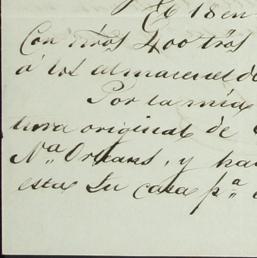 18 en
Con ntros 400 trós
á los almacenes de
Por la mia
tura original de
Na. Orleans, y ha
esta Su casa pª